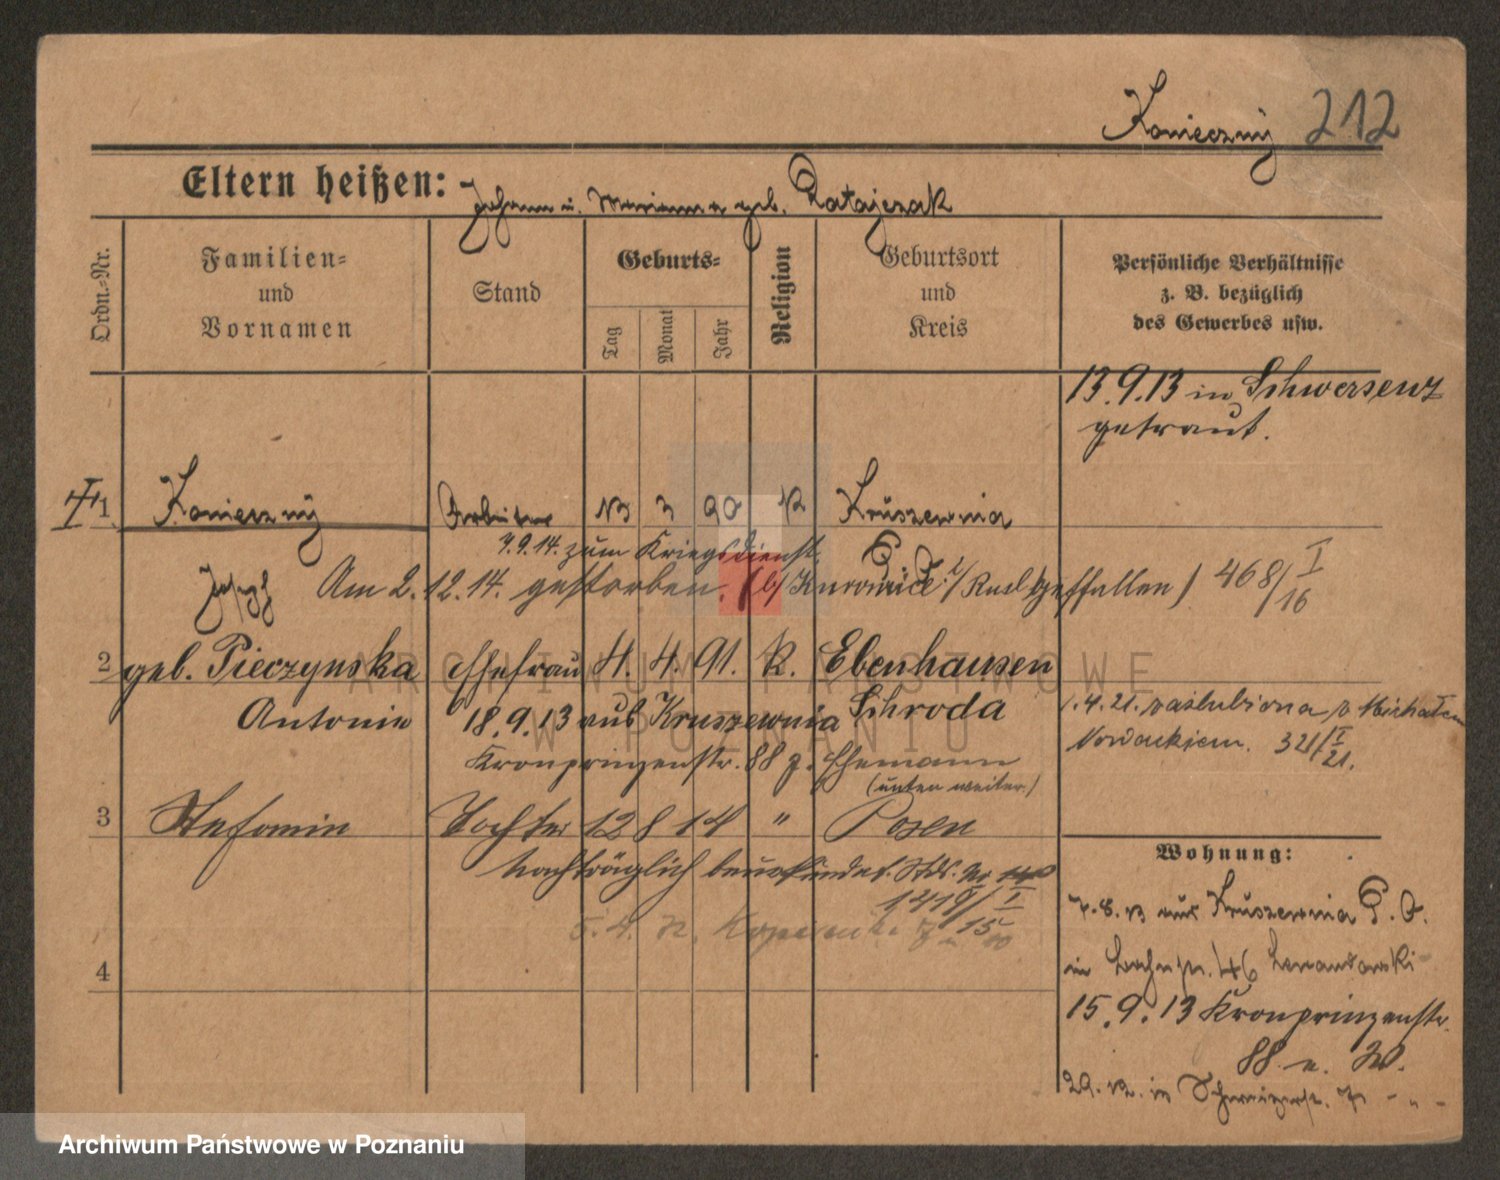 Konieczny 212
Eltern heißen: Johann u. Marianna geb. Ratajczak
Ordn.-Nr.
Familien- und Vornamen
Stand
Geburts-
Tag
Monat
Jahr
Religion
Geburtsort und Kreis
Persönliche Verhältnisse
z. B. bezüglich
des Gewerbes usw.
13.9.13 in Schwersenz
getraut.
1 Konieczny Arbeiter 13 3 90 K Kruszewnia
7.9.14. zum Kriegsdienst.
Josef Am 2.12.14. gestorben. (b/ /Rusl gefallen) 468/I 16
2 geb. Pieczynska Ehefrau 4. 4. 91. K. Ebenhausen
Antonie 18.9.13 aus Kruszewnia Schroda
1.4.21. zaslubiona z Michałem
Nowackiem. 321/I 21.
Kronprinzenstr. 88 z. Ehemann
(unten weiter.)
3 Stefanie Tochter 12 8 14 " Posen
Nachträglich beurkundet. Stds. Nr
1219/I 15
4
Wohnung:
7.8.13 aus Kruszewnia P. O.
in 46
15.9.13 Kronprinzenstr.
88 n. W.
29.12. in - " -
ARCHIWUM PAŃSTWOWE
W POZNANIU
Archiwum Państwowe w Poznaniu